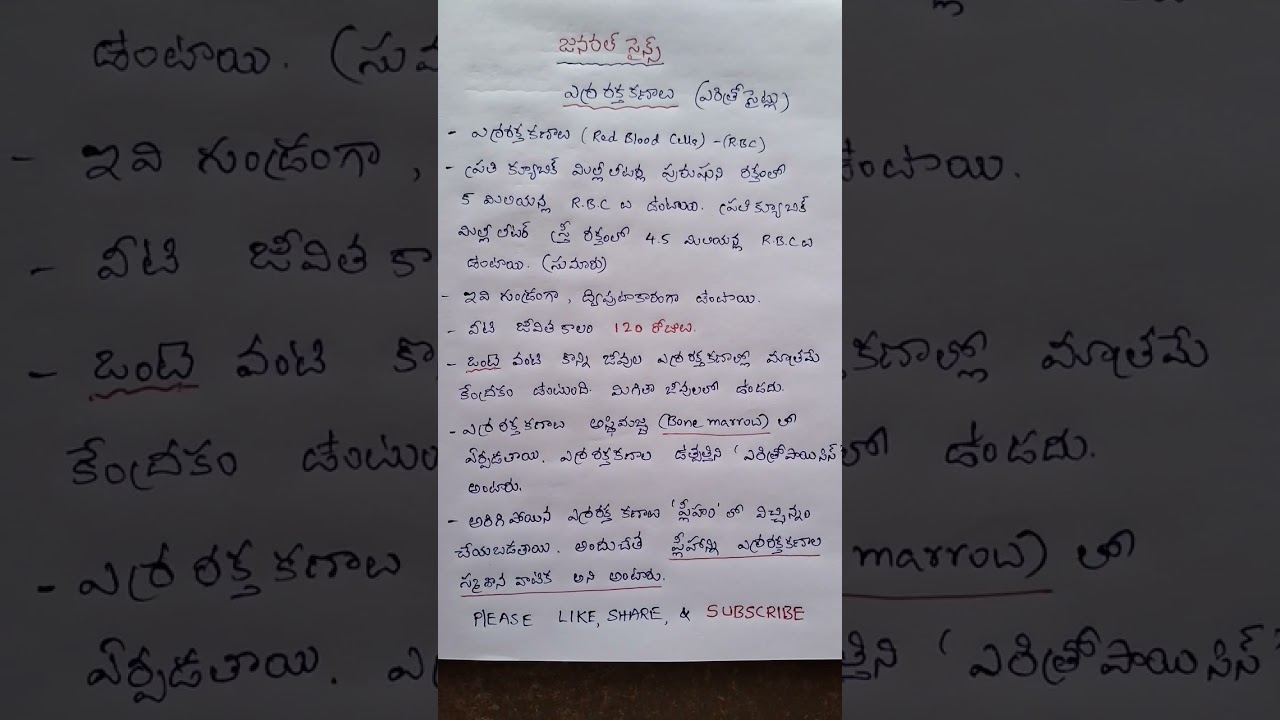 జనరల్ సైన్స్
ఎర్ర రక్త కణాలు (ఎరిత్రోసైట్లు)
- ఎర్రరక్త కణాలు (Red Blood Cells) - (RBC)
- ప్రతి క్యూబిక్ మిల్లీ లీటర్ల పురుషుని రక్తంలో
5 మిలియన్ల R.B.C లు ఉంటాయి. ప్రతి క్యూబిక్
మిల్లీ లీటర్ స్త్రీ రక్తంలో 4.5 మిలియన్ల R.B.C లు
ఉంటాయి. (సుమారు)
- ఇవి గుండ్రంగా, ద్విపుటాకారంగా ఉంటాయి.
- వీటి జీవిత కాలం 120 రోజులు.
- ఒంటె వంటి కొన్ని జీవుల ఎర్రరక్తకణాల్లో మాత్రమే
కేంద్రకం ఉంటుంది. మిగితా జీవులలో ఉండదు.
- ఎర్ర రక్త కణాలు అస్థిమజ్జ (Bone marrow) లో
ఏర్పడతాయి. ఎర్రరక్తకణాల ఉత్పత్తిని 'ఎరిత్రోపాయిసిస్'
అంటారు.
- అరిగిపోయిన ఎర్రరక్త కణాలు 'ప్లీహం' లో విచ్ఛిన్నం
చేయబడతాయి. అందుచేత ప్లీహాన్ని ఎర్రరక్తకణాల
స్మశాన వాటిక అని అంటారు.
PLEASE LIKE, SHARE, & SUBSCRIBE